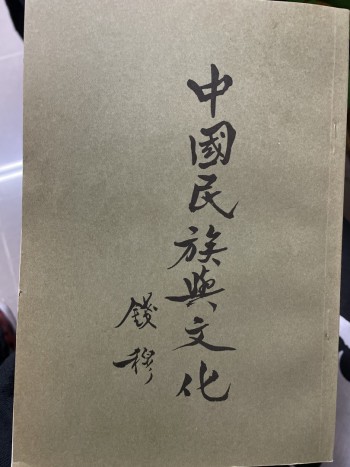 中國民族與文化
錢穆